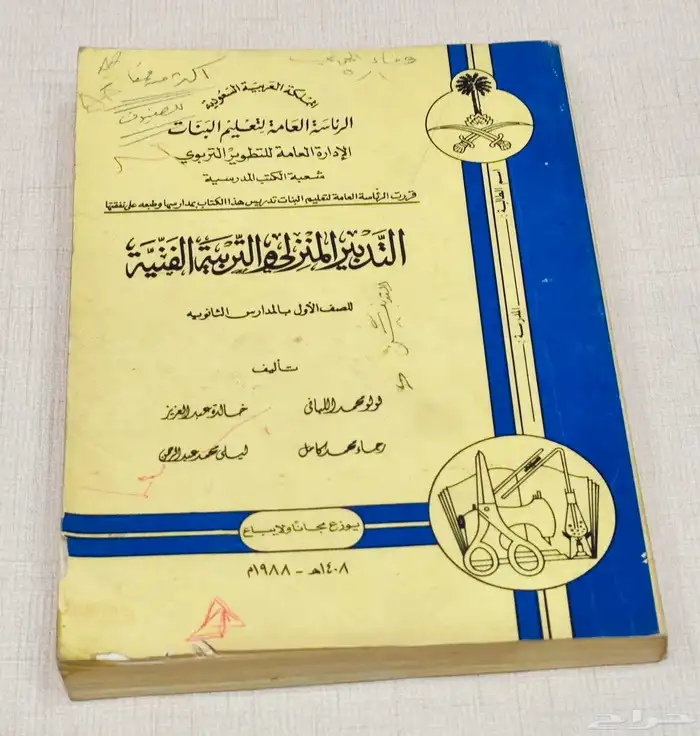 أكثر من صفحا
للصفوف
المملكة العربية السعودية
الرئاسة العامة لتعليم البنات
الإدارة العامة للتطوير التربوي
شعبة الكتب المدرسية
قررت الرئاسة العامة لتعليم البنات تدريس هذا الكتاب بمدارسها وطبعه على نفقتها
التدبير المنزلي والتربية الفنية
للصف الأول بالمدارس الثانويه
تأليف
لولو محمد اللهافي خالدة عبد العزيز
رجاء محمد كامل ليلى محمد عبد الرحمن
يوزع مجانًا ولا يباع
١٤٠٨هـ - ١٩٨٨م
اسم الطالبة:
المدرسة:
حراج